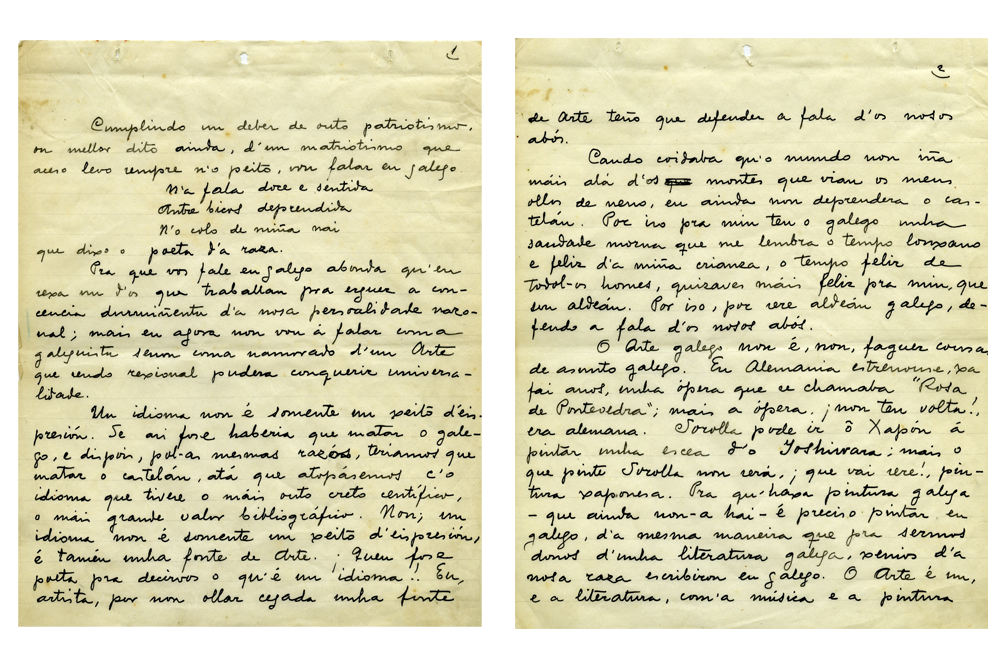 1
Cumplindo un deber de outo patriotismo,
ou mellor dito ainda, d'un matriotismo que
aceso levo sempre n'o peito, vou falar en galego
N'a fala doce e sentida
Antre bicos deprendida
N'o colo de miña nai
que dixo o poeta d'a raza.
Pra que vos fale en galego abonda qu'eu
sexa un d'os que traballan pra erguer a con-
cencia durmiñenta d'a nosa persoalidade nazo-
nal; mais eu agora non vou á falar coma
galeguista senon coma namorado d'un Arte
que sendo rexional pudera conquerir universa-
lidade.
Un idioma non é somente un xeito d'eis-
presión. Se asi fose haberia que matar o gale-
go, e dispois, pol-as mesmas razós, teriamos que
matar o castelán, atá que atopásemos c'o
idioma que tivese o máis outo creto centífico,
o mais grande valor bibliográfico. Non; un
idioma non é somente un xeito d'eispresión,
é tamén unha fonte de Arte. ¡Quen fose
poeta pra decirvos o qu'é un idioma!! Eu,
artista, por non ollar cegada unha fonte
2
de Arte teño que defender a fala d'os nosos
abós.
Cando coidaba qu'o mundo non iña
máis alá d'os que montes que vian os meus
ollos de neno, eu ainda non deprendera o cas-
telán. Por iso pra min ten o galego unha
saudade morna que me lembra o tempo lonxano
e feliz d'a miña crianza, o tempo feliz de
todol-os homes, quizaves máis feliz pra min, que
son aldeán. Por iso, por sere aldeán galego, de-
fendo a fala d'os nosos abós.
O Arte galego non é, non, faguer cousas
de asunto galego. En Alemania estrenouse, xa
fai anos, unha ópera que se chamaba "Rosa
de Pontevedra"; mais a ópera, ¡non ten volta!,
era alemana. Sorolla pode ir ô Xapón á
pintar unha escea d'o Yoshiwara; mais o
que pinte Sorolla non será, ¡que vai sere!, pin-
tura xaponesa. Pra qu'haxa pintura galega
- que ainda non-a hai - é preciso pintar en
galego, d'a mesma maneira que pra sermos
donos d'unha literatura galega, xenios d'a
nosa raza escribiron en galego. O Arte é un,
e a literatura, com'a música e a pintura